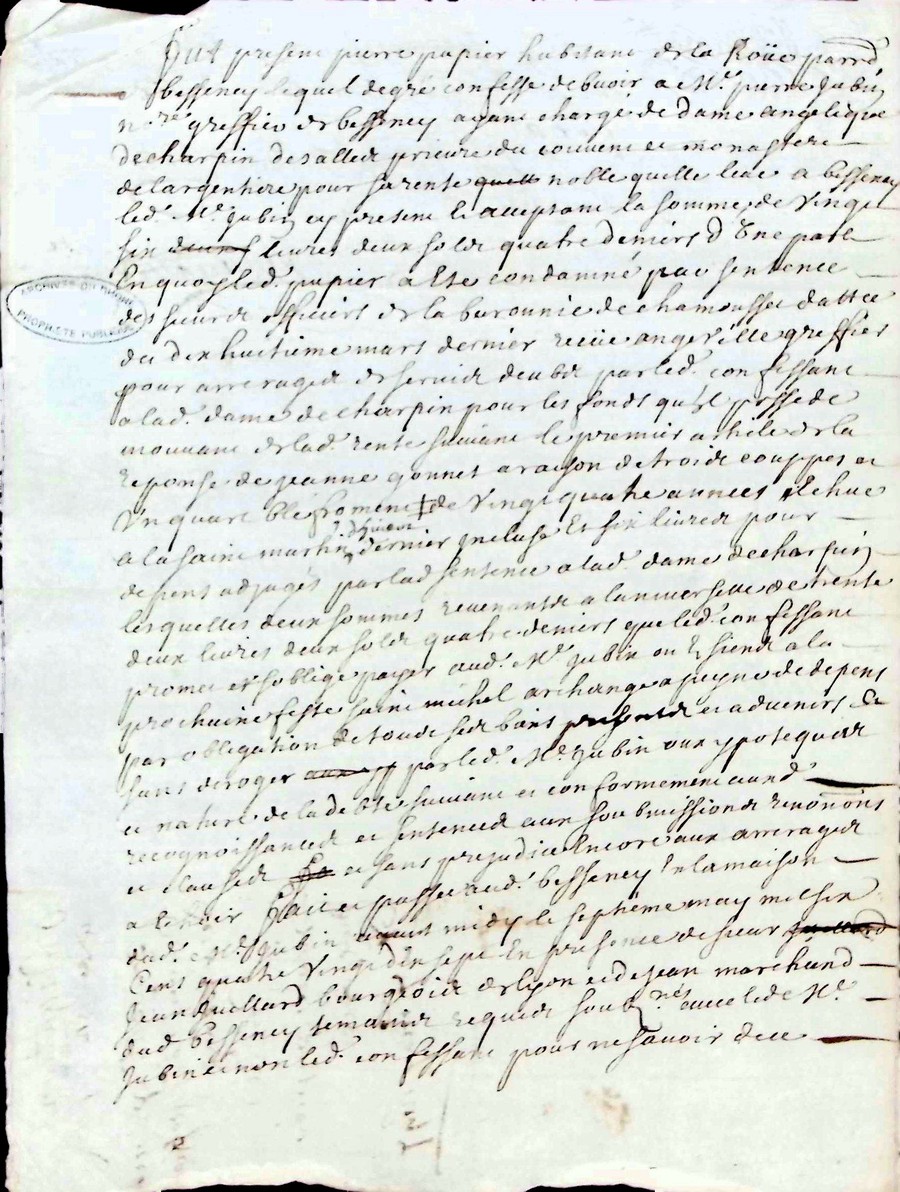 Fut present pierre papier habitant de la Roüe parr.d
bessenay lequel de gré confesse debvoir a M.e pierre Jubin
no.re greffier de bessenay ayant charge de dame angelique
de charpin des alles prieure du couvent et monastere
de largentiere pour sa rente quell noble quelle leve a bessenay
led. M.e Jubin cy present et acceptant la somme de vingt
six livres deux solz quatre deniers d'une part
En quoy led. papier a ete condamné par sentence
des sieurs officiers de la baronnie de chamousset dattee
du dix huitieme mars dernier greffier
pour arrerages de servis deubz par led. confessant
a lad. dame de charpin pour les fonds qu'il possede
mouvant de lad. rente suivant le premier article de la
reponse de jeanne gonnet a raison de trois couppes et
Un quart blé froment de vingt quatre annees echue
a la saint martin d'hiver dernier incluse Et six livres pour
depens adjugés par lad sentence a lad. dame de charpin
lesquelles deux sommes revenants a la de trente
deux livres deux solz quatre deniers que led. confessant
promet et soblige payer aud. M.e Jubin ou Es siens a la
prochaine feste saint michel archange a peyne de depens
par obligation de tous ses biens presents et advenirs &
sans deroger par led. M.e Jubin aux ypoteques
et nature de la debte suivant et conformement aud
recognoissances et sentences aux soubmissions renon.ons
et clauses et sans prejudice Encore aux arrerages
a lechoir Fait et passé aud. bessenay En la maison
dud. M.e Jubin avant midy le septieme may mil six
Cents quatre vingt dix sept En presence de sieur
Jean Juellard bourgeois de lyon et de Jean marchand
dud bessenay temoins requis soub.nés avec led M.e
Jubin et non led. confessant pour ne savoir de ce
ARCHIVES DU RHÔNE
PROPRIÉTÉ PUBLIQUE